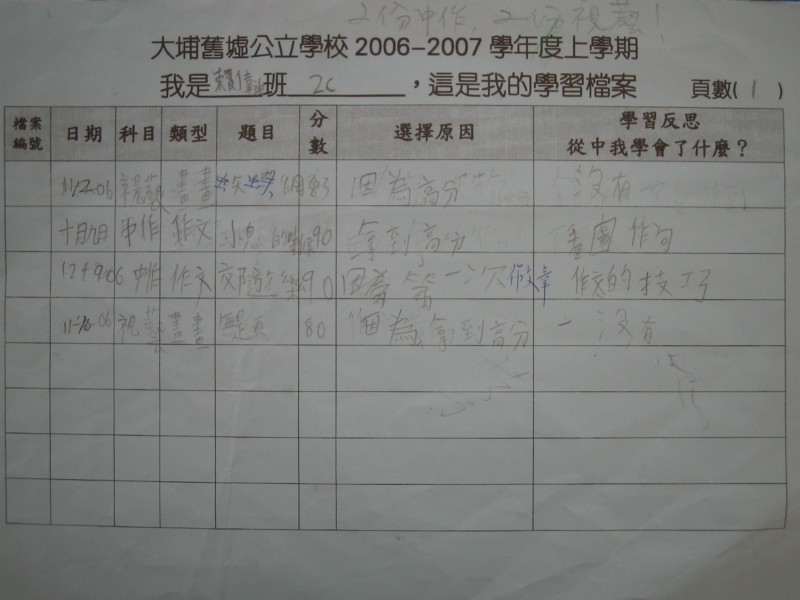 2份中作,2份視藝!
大埔舊墟公立學校 2006-2007 學年度上學期
我是賴偉 班 2C ,這是我的學習檔案 頁數( 1 )
檔案編號 日期 科目 類型 題目 分數 選擇原因 學習反思 從中我學會了什麼?
視藝 畫畫 83 因為高分 沒有
十月九日 中作 作文 小息 90 拿到高分 畫圖作句
中作 作文 郊遊樂 90 因為第一次作文章 作文的技巧
視藝 畫畫 80 因為拿到高分 沒有